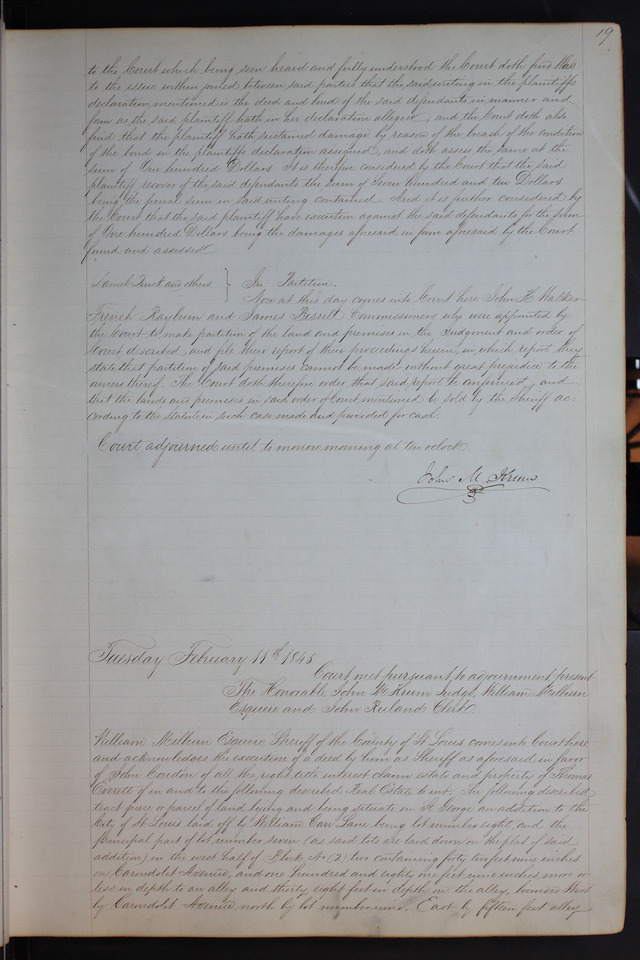 19
to the Court which being seen heard and fully understood the Court doth find that
to the issue within joined between said parties that the said writing in the plaintiffs
declaration mentioned is the deed and bond of the said defendants in manner and
form as the said plaintiff hath in her declaration alleged and the Court doth also
find that the plaintiff hath sustained damage by reason of the breach of the condition
of the bond in the plaintiffs declaration assigned, and doth assess the same at the
sum of One hundred Dollars. It is therefore considered by the Court that the said
plaintiff recover of the said defendants the sum of Seven hundred and ten Dollars
being the penal sum in said writing contained. And it is further considered by
the Court that the said plaintiff have execution against the said defendants for the sum
of One hundred Dollars being the damages aforesaid in form aforesaid by the Court
found and assessed
Daniel and others } In Partition.
Now at this day comes into Court here John H. Walker
French Rayburn and James Bissell Commissioners who were appointed by
the Court to make partition of the land and premises in the Judgment and order of
Court described, and file their report of their proceedings herein, in which report they
state that partition of said premises cannot be made without great prejudice to the
owners thereof. The Court doth therefore order that said report be confirmed, and
that the lands and premises in said order of Court mentioned be sold by the Sheriff ac-
cording to the statute in such case made and provided for cash.
Court adjourned until to morrow morning at ten oclock.
John M. Krum
Tuesday February 11th 1845
Court met pursuant to adjournment present
The Honorable John M Krum Judge, William Milburn
Esquire and John Ruland Clerk
William Milburn Esquire Sheriff of the County of St Louis comes into Court here
and acknowledges the execution of a deed by him as Sheriff as aforesaid in favor
of John Condon of all the right title interest claim estate and property of Thomas
Everett of in and to the following described Real Estate to wit: The following described
tract piece or parcel of land lying and being situate in St George an addition to the
City of St Louis laid off by William Carr Lane being lot number eight, and the
principal part of lot number seven (as said lots are laid down on the plat of said
addition) in the west half of Block No (2) two containing forty two feet nine inches
on Carondolet Avenue, and one hundred and eighty one feet nine inches, more or
less in depth to an alley and thirty eight feet in depth on the alley, bounded West
by Carondolet Avenue north by lot number nine. East by fifteen feet alley